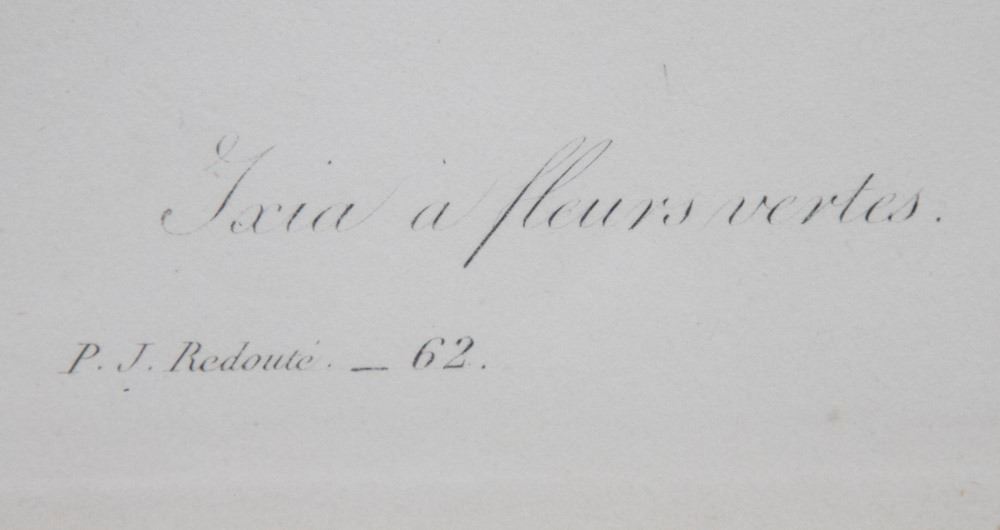 Ixia à fleurs vertes.
P. J. Redouté. — 62.